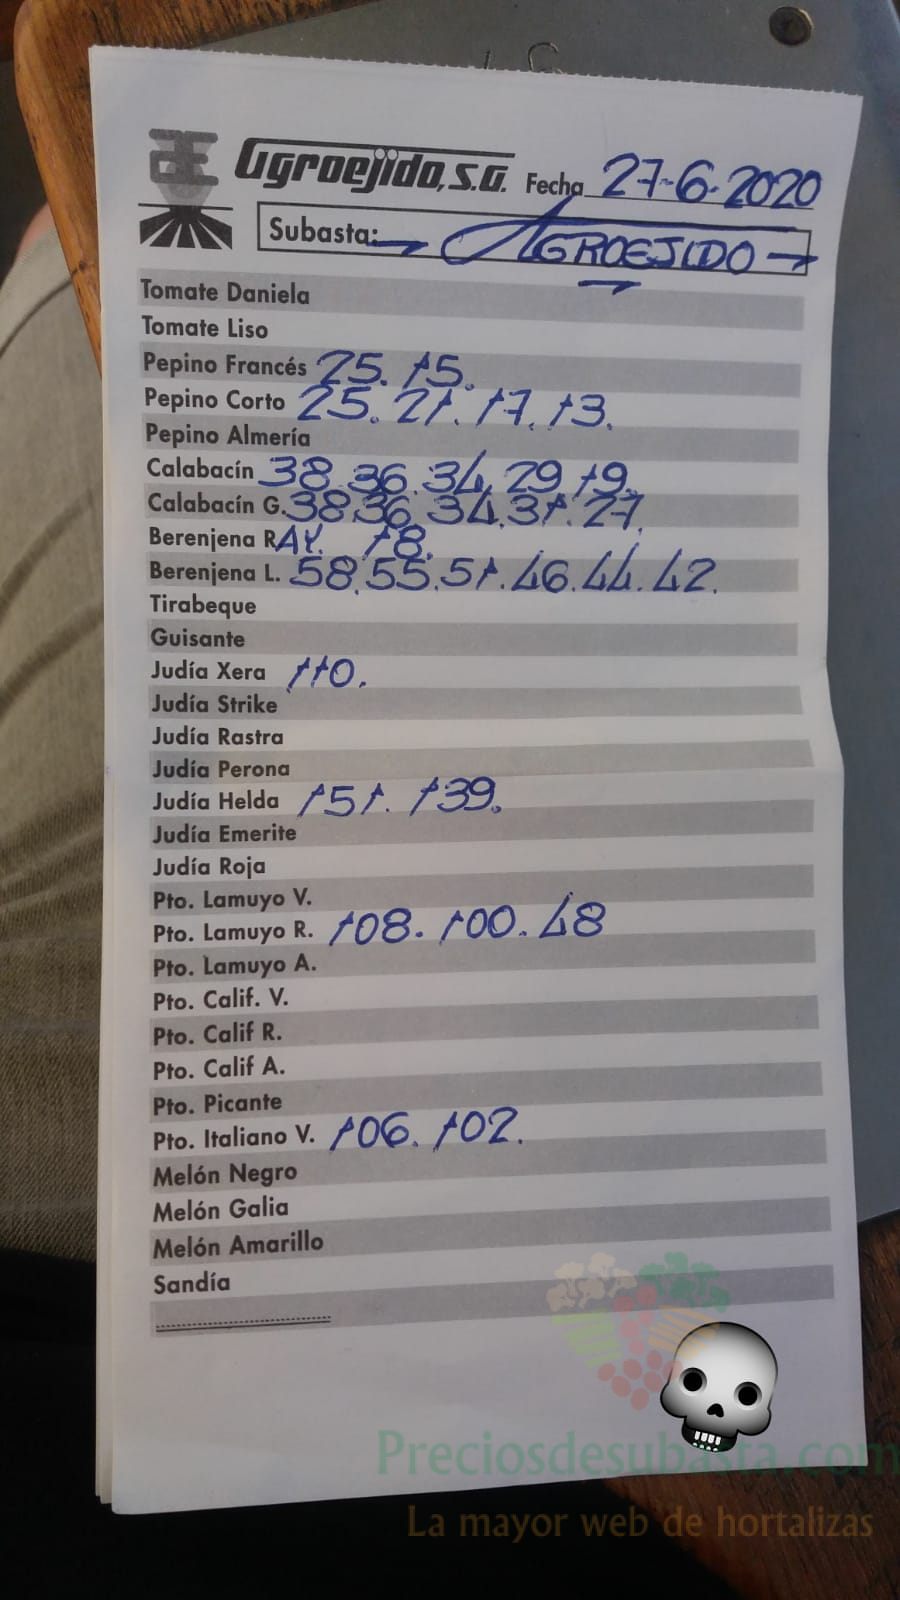 Agroejido, S.A. Fecha 27-6-2020
Subasta: AGROEJIDO
Tomate Daniela
Tomate Liso
Pepino Francés 25. 15.
Pepino Corto 25. 21. 17. 13.
Pepino Almería
Calabacín 38. 36. 34. 29. 19.
Calabacín G. 38 36. 34. 31. 27.
Berenjena RAY. 18.
Berenjena L. 58. 55. 51. 46. 44. 42.
Tirabeque
Guisante
Judía Xera 110.
Judía Strike
Judía Rastra
Judía Perona
Judía Helda 151. 139.
Judía Emerite
Judía Roja
Pto. Lamuyo V.
Pto. Lamuyo R. 108. 100. 48
Pto. Lamuyo A.
Pto. Calif. V.
Pto. Calif R.
Pto. Calif A.
Pto. Picante
Pto. Italiano V. 106. 102.
Melón Negro
Melón Galia
Melón Amarillo
Sandía
Preciosdesubasta.com
La mayor web de hortalizas